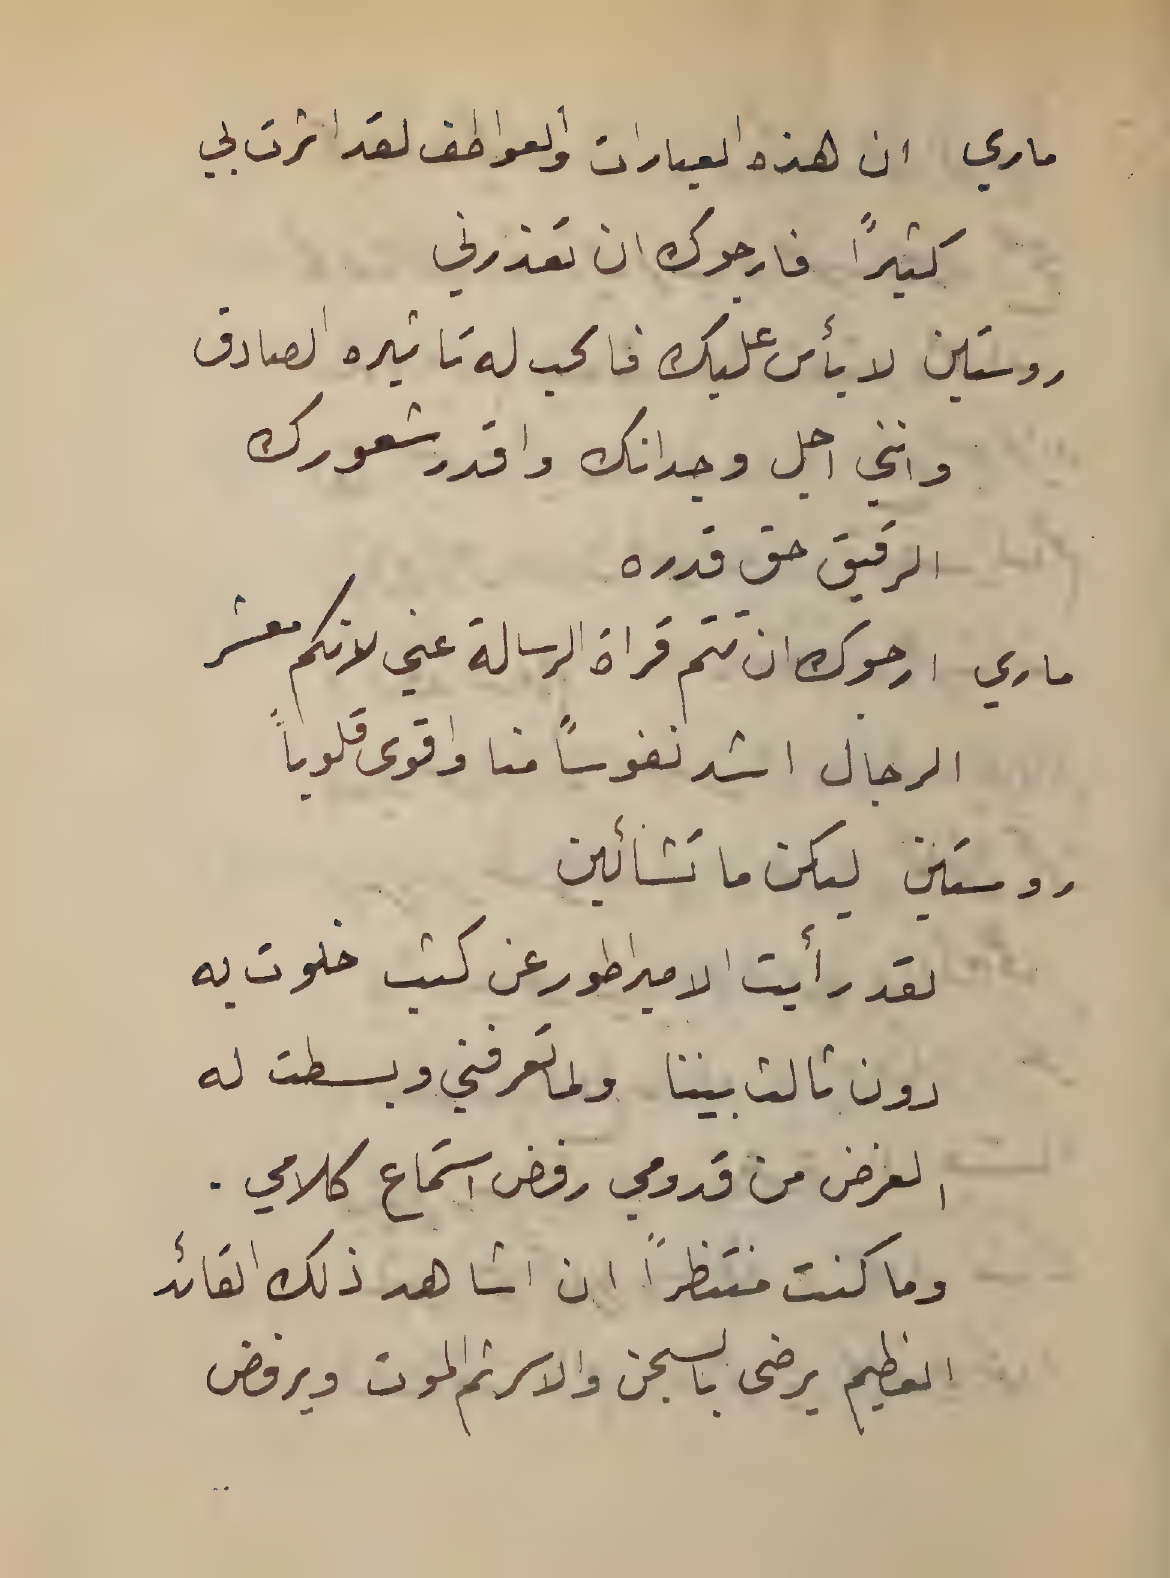 ماري ان هذه العبارات والعواطف لقد اثرت بي
كثيراً فارجوك ان تعذرني
روستين لا بأس عليك فالحب له تاثيره الصادق
وانني اجل وجدانك واقدر شعورك
الرقيق حق قدره
ماري ارجوك ان تتم قراة الرسالة عني لانكم معشر
الرجال اشد نفوساً منا واقوى قلوباً
روستين ليكن ما تشائين
لقد رأيت الامبراطور عن كثب خلوت به
دون ثالث بيننا ولما تعرفني وبسطت له
الغرض من قدومي رفض استماع كلامي .
وما كنت منتظراً ان اشاهد ذلك القائد
العظيم يرضى بالسجن والاسر ثم الموت ويرفض